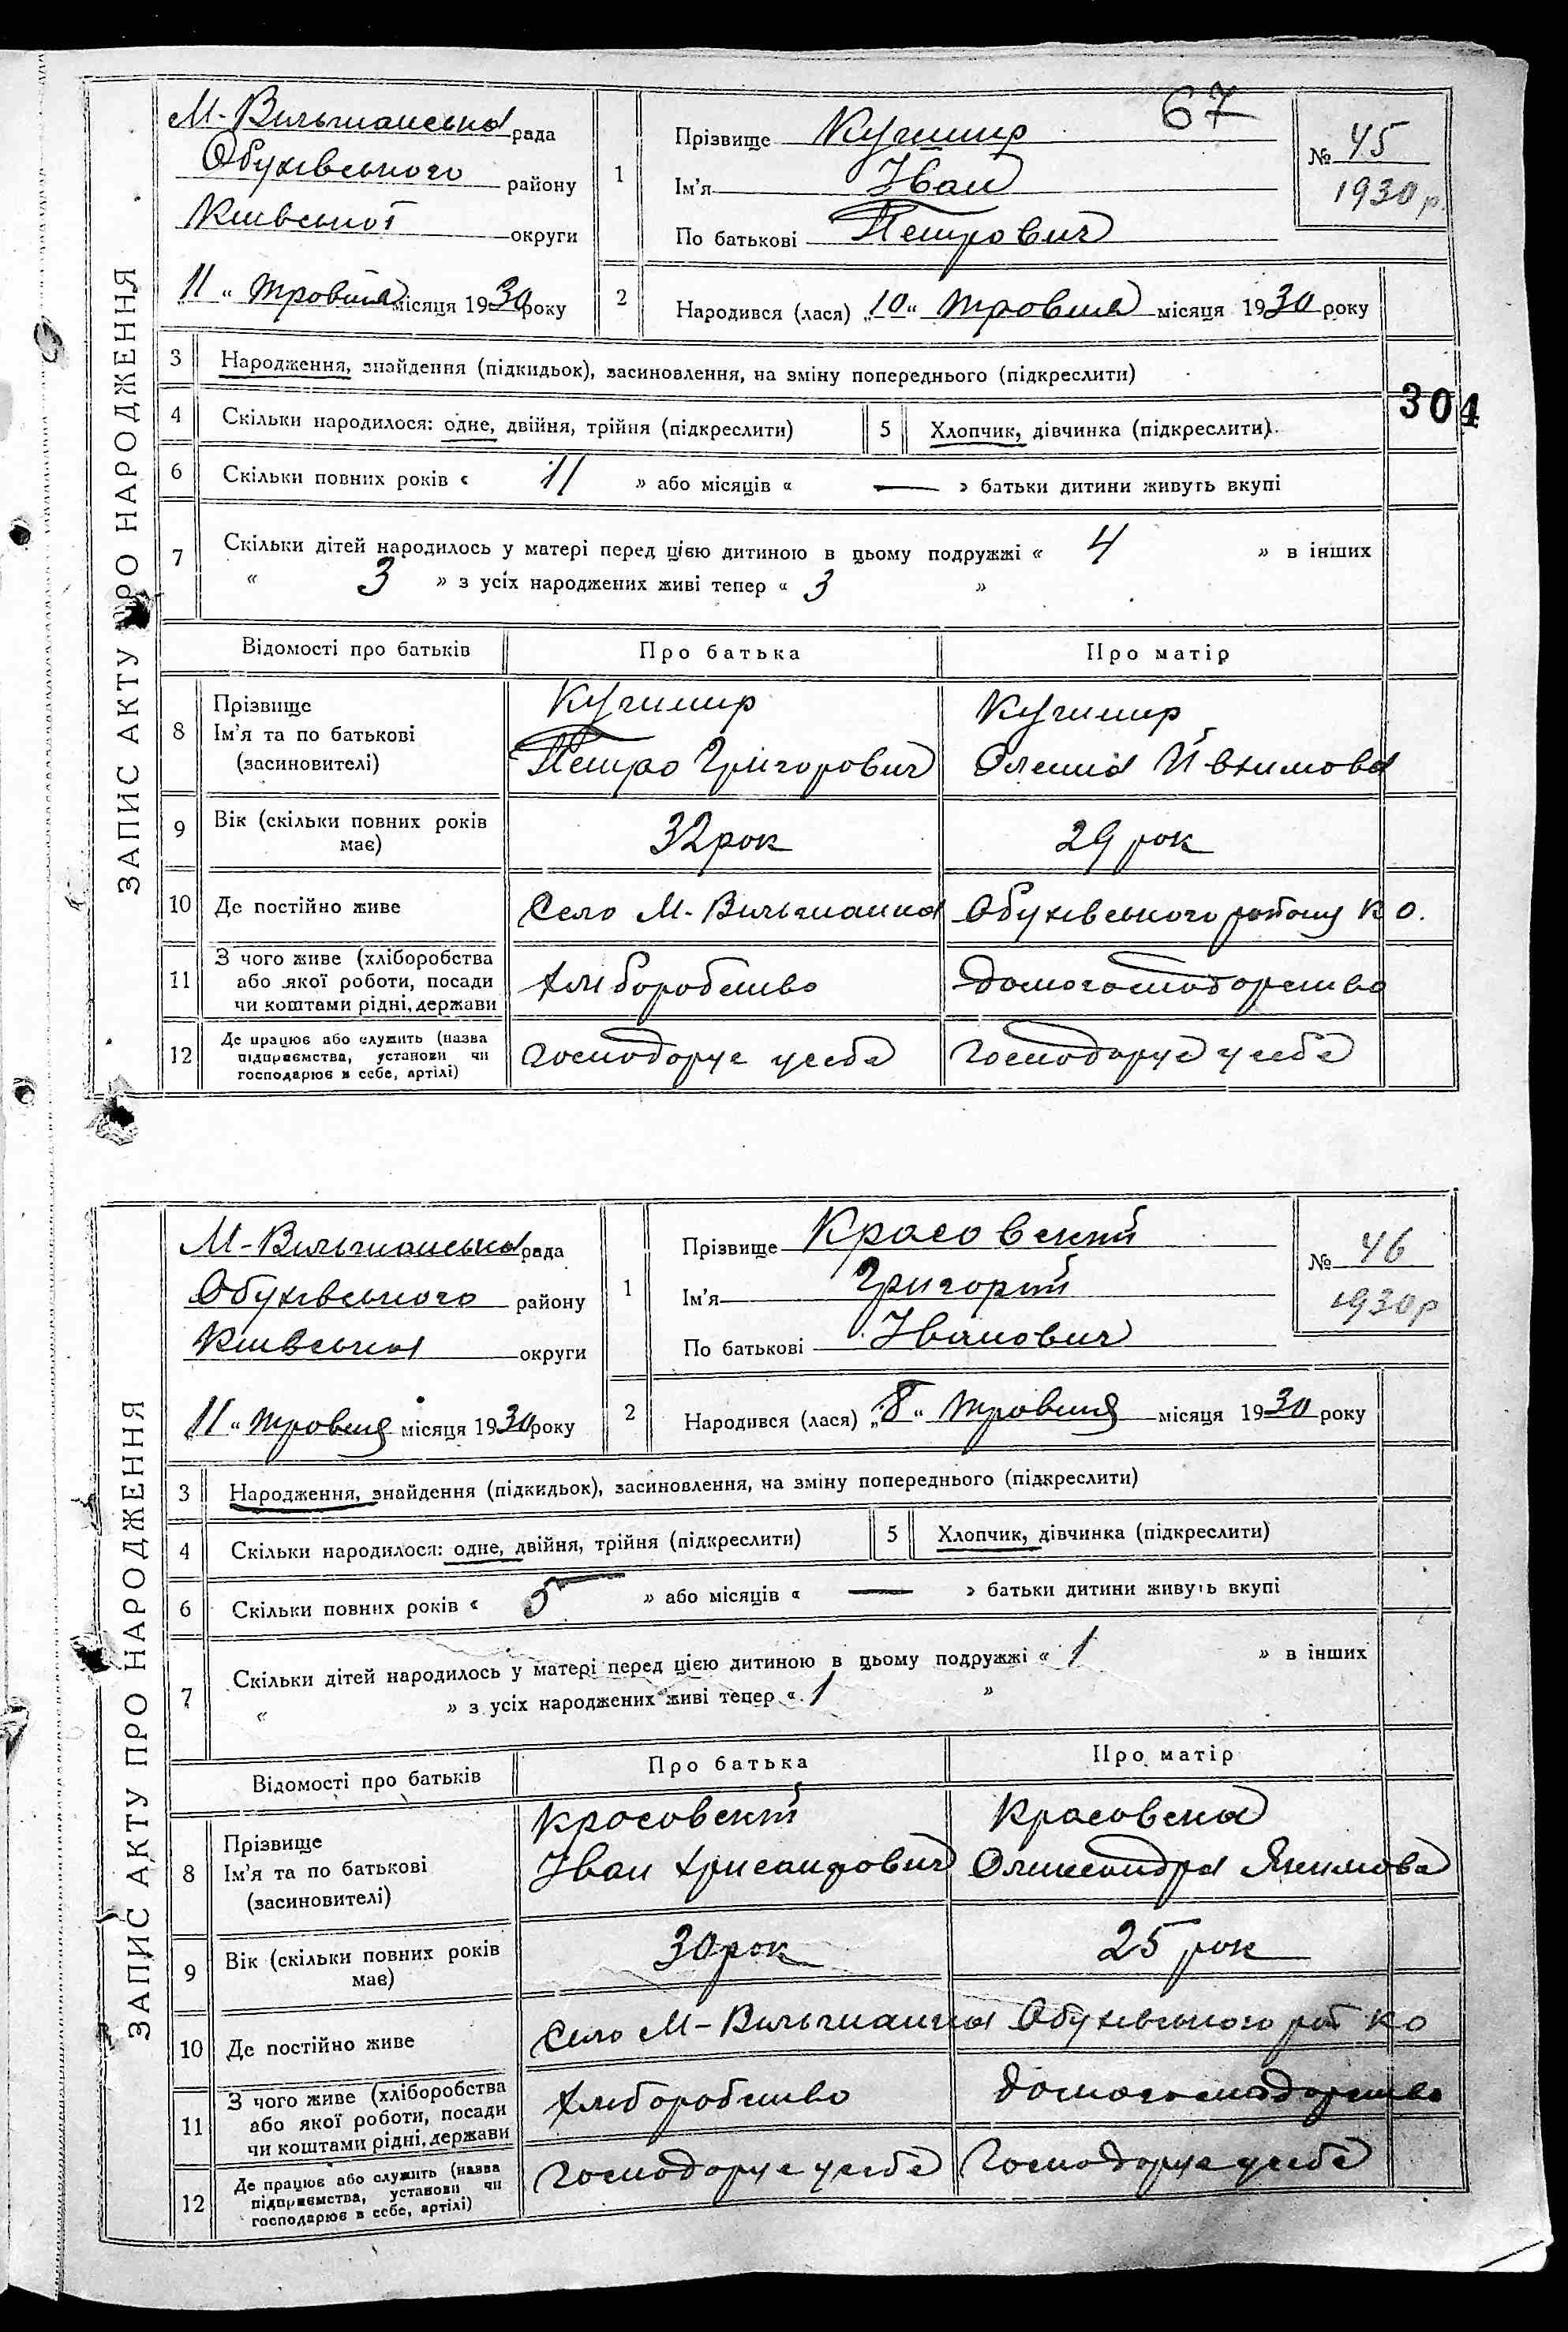 67
304
ЗАПИС АКТУ ПРО НАРОДЖЕННЯ
М-Вильшанська рада
Обухівського району
Київської округи
11 „ травня місяця 1930 року
1
Прізвище Кушнир
Ім'я Іван
По батькові Петрович
№ 45
1930 р.
2
Народився (лася) „10“ травня місяця 1930 року
3 Народження, знайдення (підкидьок), засиновлення, на зміну попереднього (підкреслити)
4 Скільки народилося: одне, двійня, трійня (підкреслити) 5 Хлопчик, дівчинка (підкреслити)
6 Скільки повних років « 11 » або місяців « — » батьки дитини живуть вкупі
7 Скільки дітей народилось у матері перед цією дитиною в цьому подружжі « 4 » в інших
« 3 » з усіх народжених живі тепер « 3 »
Відомості про батьків Про батька Про матір
8 Прізвище Ім'я та по батькові (засиновителі)
Кушнир Кушнир
Петро Григорович Олена
9 Вік (скільки повних років має) 32 рок 29 рок
10 Де постійно живе Село М-Вильшанка Обухівського району К О.
11 З чого живе (хліборобства або якої роботи, посади чи коштами рідні, держави
Хліборобство домогосподарство
12 Де працює або служить (назва підприємства, установи чи господарює в себе, артілі)
Господарує у себе Господарує у себе
ЗАПИС АКТУ ПРО НАРОДЖЕННЯ
М-Вильшанська рада
Обухівського району
Київська округи
11 „ травня місяця 1930 року
1
Прізвище Красовский
Ім'я Григорій
По батькові Іванович
№ 46
1930 р
2
Народився (лася) „8“ травня місяця 1930 року
3 Народження, знайдення (підкидьок), засиновлення, на зміну попереднього (підкреслити)
4 Скільки народилося: одне, двійня, трійня (підкреслити) 5 Хлопчик, дівчинка (підкреслити)
6 Скільки повних років « 5 » або місяців « — » батьки дитини живуть вкупі
7 Скільки дітей народилось у матері перед цією дитиною в цьому подружжі « 1 » в інших
« » з усіх народжених живі тепер « 1 »
Відомості про батьків Про батька Про матір
8 Прізвище Ім'я та по батькові (засиновителі)
Красовский Красовска
Іван Хрисанфович Олександра Якимова
9 Вік (скільки повних років має) 30 рок 25 рок
10 Де постійно живе Село М-Вильшанка Обухівського рай К О
11 З чого живе (хліборобства або якої роботи, посади чи коштами рідні, держави
Хліборобство домогосподарство
12 Де працює або служить (назва підприємства, установи чи господарює в себе, артілі)
Господарує у себе Господарує у себе